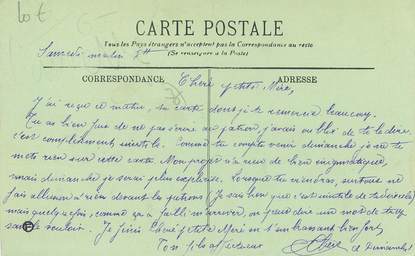 lot
CARTE POSTALE
Tous les Pays étrangers n'acceptent pas la Correspondance au recto
(Se renseigner à la Poste)
Samedi matin
CORRESPONDANCE
ADRESSE
Chère petite Mère,
J'ai reçu ce matin, ta carte dont je te remercie beaucoup.
Tu as bien fait de ne pas écrire au patron j'avais oublié de te le dire
c'est complètement inutile. Comme tu compte venir dimanche je ne te
mets rien sur cette carte. Mon projet n'a rien de bien énigmatique,
mais dimanche je serai plus explicite. Lorsque tu viendras, surtout ne
fais allusion à rien devant les patrons (Je sais bien que c'est inutile de te le dire)
mais quelquefois, comme ça a failli m'arriver, on peut dire un mot de trop
sans le vouloir. Je finis Chère petite Mère en t'embrassant bien fort
Ton fils affectueux
à Dimanche!